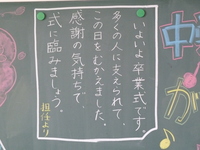 いよいよ卒業式です
多くの人に支えられて、
この日をむかえました。
感謝の気持ちで、
式に臨みましょう。
担任より
中
が